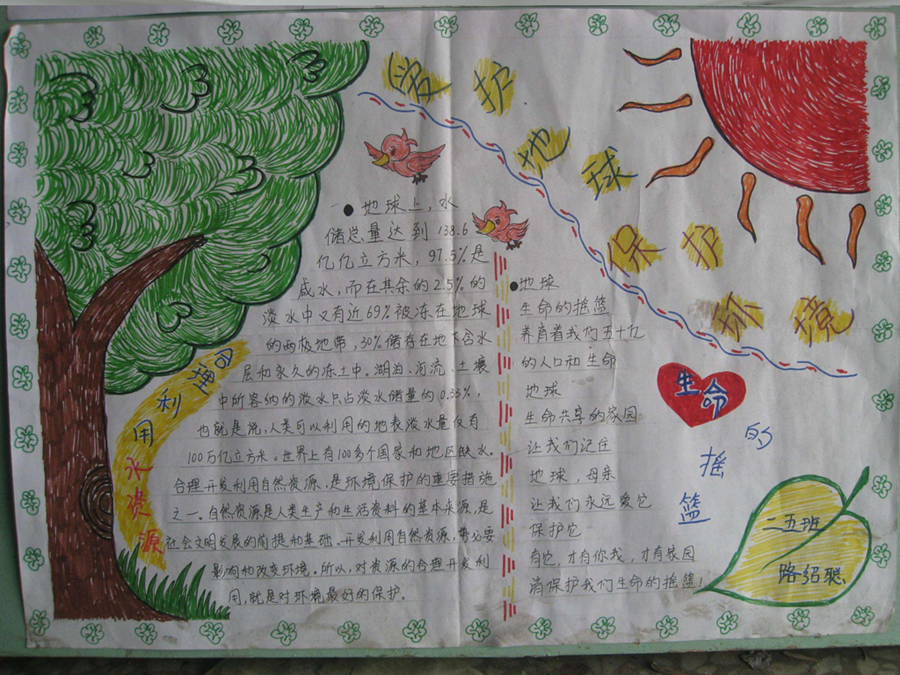 爱护地球保护环境
合理利用水资源
地球上，水
储总量达到138.6
亿亿立方米，97.5%是
咸水，而在其余的2.5%的
淡水中又有近69%被冻在地球
的两极地带，30%储存在地下含水
层和永久的冻土中。湖泊、河流、土壤
中所容纳的淡水只占淡水储量的0.33%，
也就是说，人类可以利用的地表淡水量仅有
100万亿立方米。世界上有100多个国家和地区缺水。
合理开发利用自然资源，是环境保护的重要措施
之一。自然资源是人类生产和生活资料的基本来源，是
社会文明发展的前提和基础。开发利用自然资源，需必要
影响和改变环境。所以，对资源的合理开发利
用，就是对环境最好的保护。
地球
生命的摇篮
养育着我们五十九
的人口和生命
地球
生命共享的家园
让我们记住
地球，母亲
让我们永远爱它
保护它
有它，才有你我，才有家园
请保护我们生命的摇篮！
生命的摇篮
二五班
路绍聪